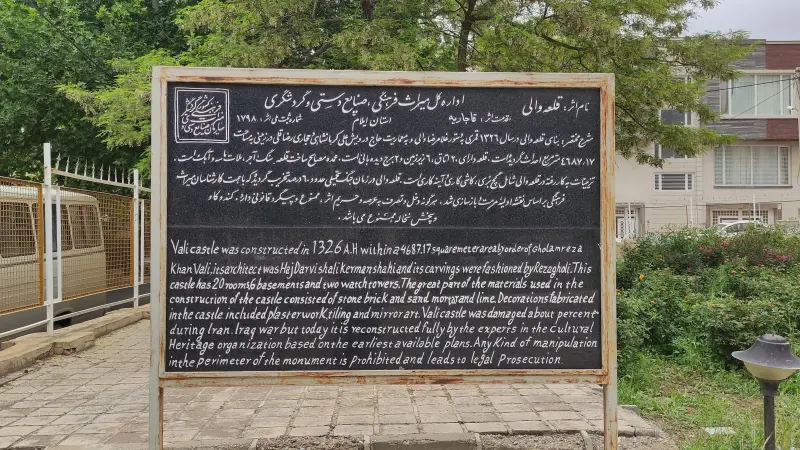 نام اثر: قلعه والی
اداره کل میراث فرهنگی، صنایع دستی و گردشگری
قدمت اثر: قاجاریه
استان ایلام
شماره ثبت ملی اثر: ۱۷۹۸
شرح مختصر: بنای قلعه والی در سال ۱۳۲۶ قمری بدستور غلامرضا والی و بمعماری حاج درویش علی کرمانشاهی و حجاری رضا قلی در زمینی به مساحت
۴۶۸۷.۱۷ متر مربع احداث گردیده است. قلعه دارای ۲۰ اتاق، ۶ زیرزمین و ۲ برج دیده بانی است. عمده مصالح ساخت قلعه سنگ، آجر، ملات ماسه و آهک است.
تزئینات به کار رفته در قلعه والی شامل گچ بری، کاشی کاری و آینه کاری است. قلعه والی در زمان جنگ تحمیلی حدود ۶۰ درصد تخریب گردید که با همت کارشناسان میراث
فرهنگی بر اساس نقشه اولیه مرمت و بازسازی شد. هر گونه دخل و تصرف به عرصه و حریم اثر، ممنوع و پیگرد قانونی دارد. کنده کاری
و پخش نخاله ممنوع می باشد.
Vali castle was constructed in 1326 A.H within a 4687.17 square meter area by order of Gholamreza
Khan Vali, its architect was Haj Darvishali Kermanshahi and its carvings were fashioned by Rezagholi. This
castle has 20 rooms, 6 basements and two watch towers. The great part of the materials used in the
construction of the castle consisted of stone brick and sand, morgtar and lime. Decorations fabricated
in the castle included plaster work, tiling and mirror art. Vali castle was damaged about percent
during Iran. Iraq war but today it is reconstructed fully by the experts in the Cultural
Heritage organization based on the earliest available plans. Any Kind of manipulation
in the perimeter of the monument is prohibited and leads to legal Prosecution.